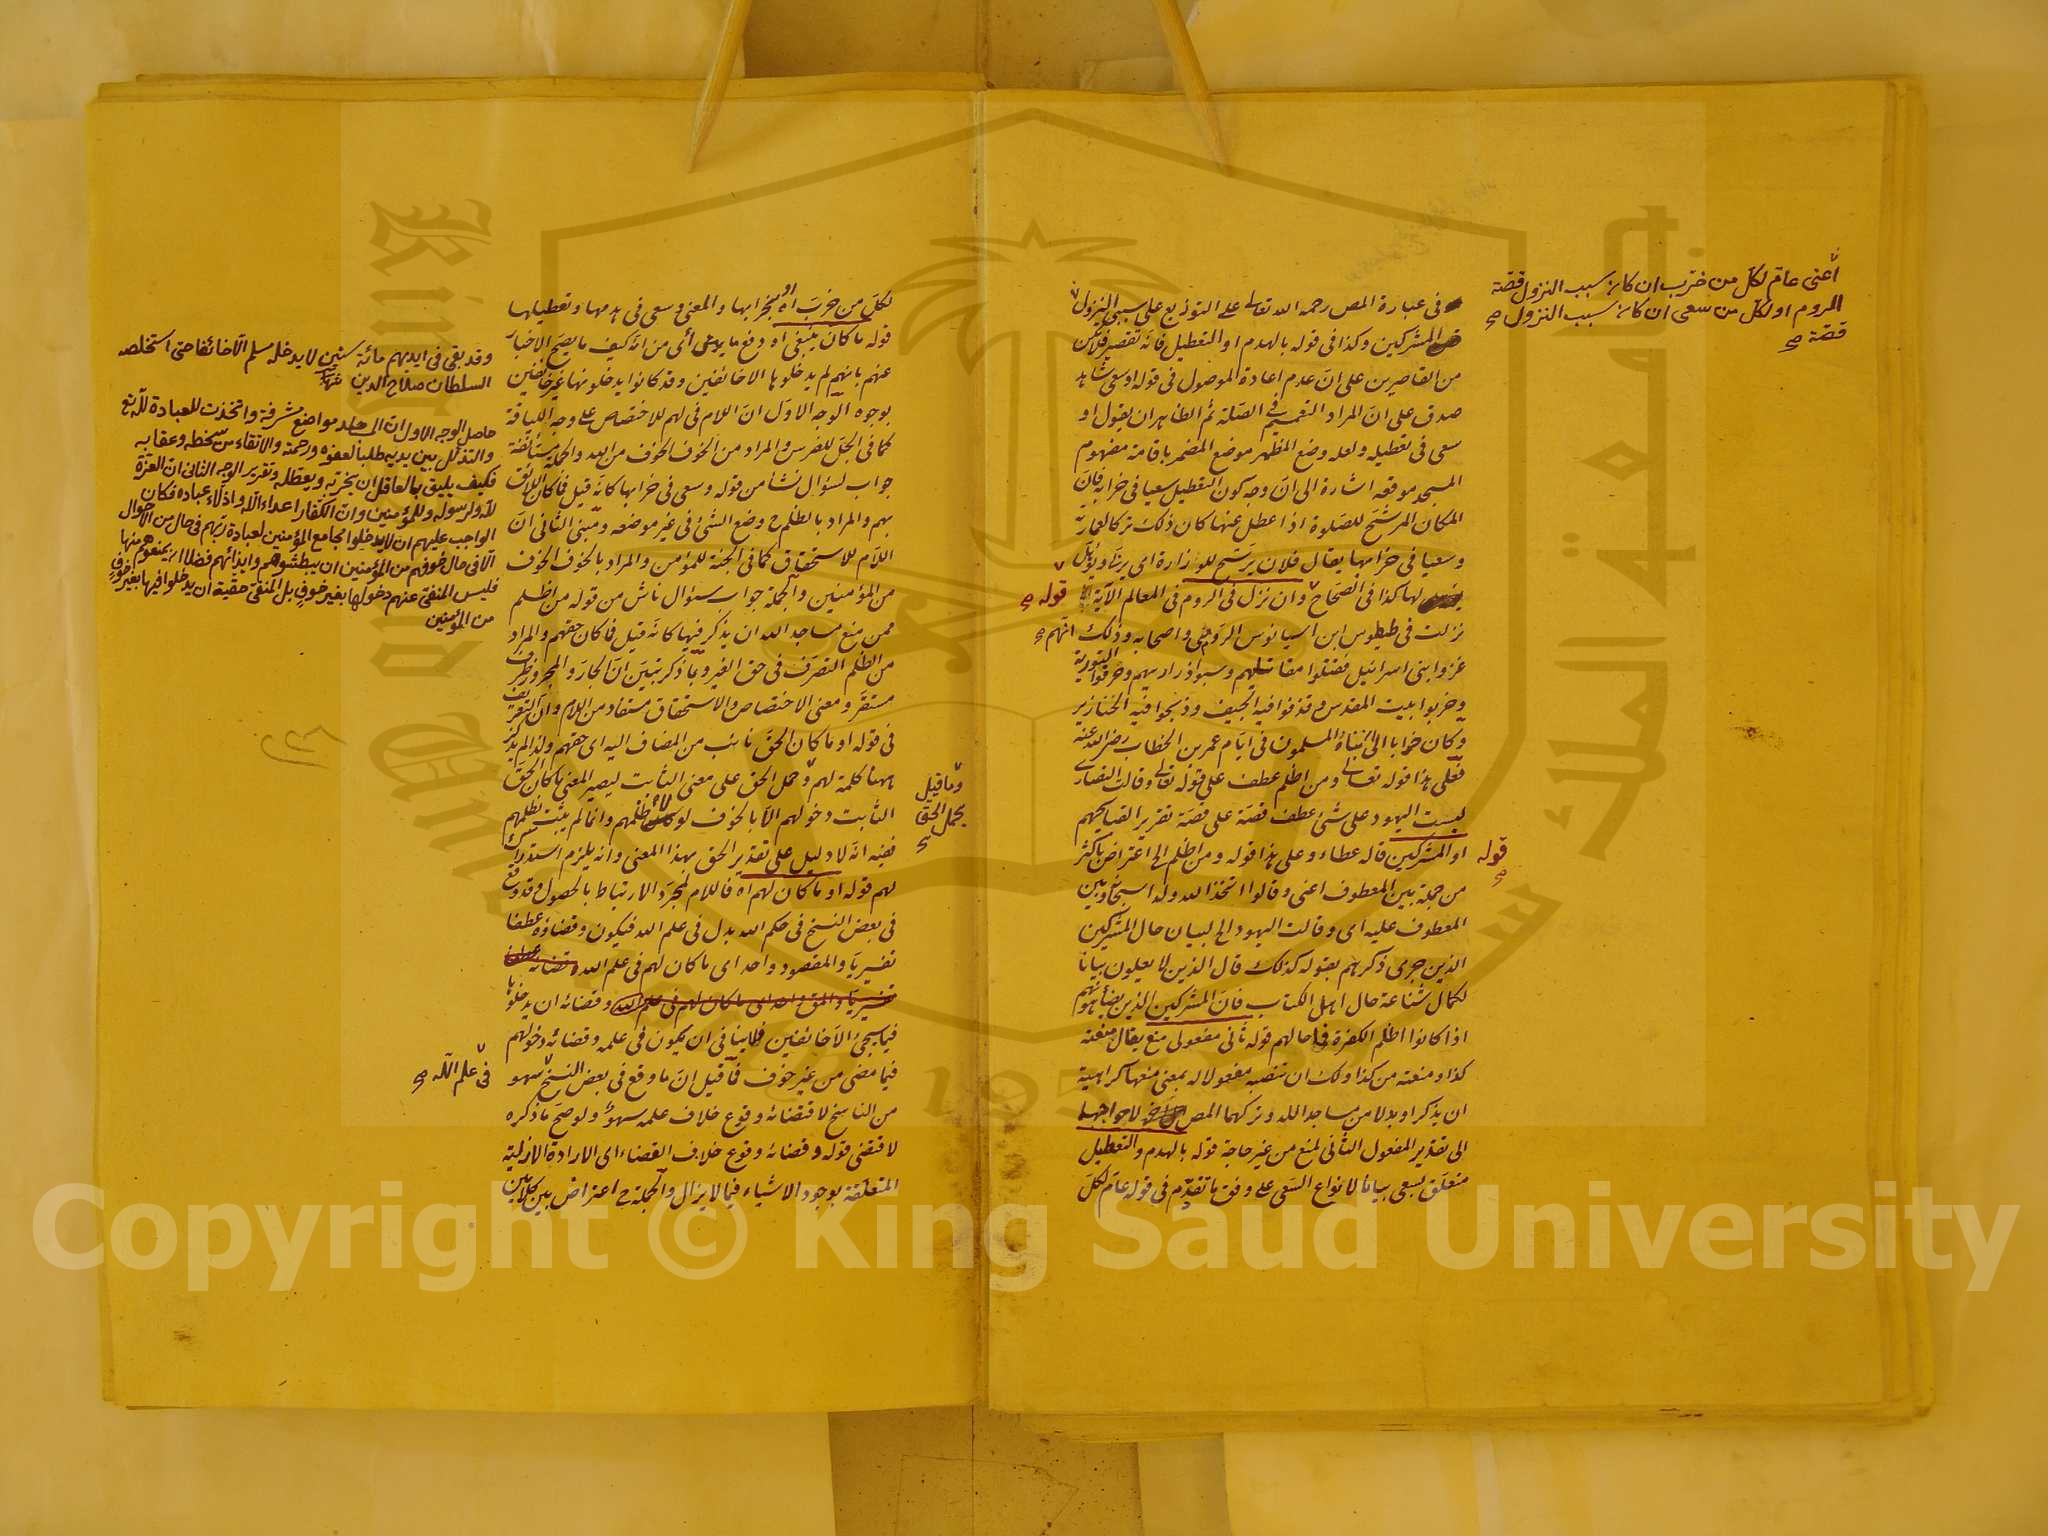 في عبارة المص رحمه الله تعالى على التوزيع على سببي النزول
المشركين وكذا في قوله بالهدم او التعطيل فانه تقصير
من القاصرين على انّ عدم اعادة الموصول في قوله او سعى شاهد
صدق على انّ المراد التعميم في الصلة ثم الظاهر ان يقول او
سعى في تعطيله ولعله وضع المظهر موضع المضمر باقامة مفهوم
المسجد موقعه اشارة الى انّ وجه كون التعطيل سعيا في خرابه فانّ
المكان المرشح للصلوة اذا عطل عنها كان ذلك تركا لعمارته
وسعيا في خرابها يقال فلان يرشح للوزارة اى يربّا ويؤهّل
لها كذا في الصحاح وان نزل في الروم في المعالم الآية
نزلت في طيطوس ابن اسيانوس الرومى واصحابه وذلك انّهم
غزوا بنى اسرائيل فقتلوا مقاتليهم وسبوا ذراريهم وحرقوا التورية
وخربوا بيت المقدس وقذفوا فيه الجيف وذبحوا فيه الخنازير
وكان خرابا الى ان بناه المسلمون في ايّام عمر بن الخطاب رضى الله عنه
فعلى هذا قوله تعالى ومن اظلم عطف على قوله تعالى وقالت النصارى
ليست اليهود على شئ عطف قصة على قصة تقريرا لقبايحهم
او المشركين قاله عطاء وعلى هذا قوله ومن اظلم الخ اعتراض باكثر
من جملة بين المعطوف اعنى وقالوا اتخذ الله ولدا سبحانه وبين
المعطوف عليه اى وقالت اليهود الخ لبيان حال المشركين
الذين جرى ذكرهم بقوله كذلك قال الذين لا يعلمون بيانا
لكمال شناعة حال اهل الكتاب فانّ المشركين الذين يضاهونهم
اذا كانوا اظلم الكفرة فما حالهم قوله ثاني مفعولى منع يقال منعته
كذا ومنعته من كذا ولك ان تنصبه مفعولا له بمعنى منعها كراهية
ان يذكر او بدلا من مساجد الله وتركهما المص لاحواجها
الى تقدير المفعول الثانى لمنع من غير حاجة قوله بالهدم والتعطيل
متعلق بسعى بيانا لانواع السعى على وفق ما تقدّم في قوله عام لكلّ
اعنى عام لكل من خرّب ان كان سبب النزول قصة
الروم او لكل من سعى ان كان سبب النزول
قصة صح
قوله صح
قوله صح
لكل من خرّب اه او بخرابها والمعنى وسعى في هدمها وتعطيلها
قوله ما كان ينبغى اه دفع ما يدعى من انه كيف ما يصح الاخبار
عنهم بانهم لم يدخلوها الا خائفين وقد كانوا يدخلونها غير خائفين
بوجوه الوجه الاول انّ اللام في لهم للاختصاص على وجه اللياقة
كما في الجل للفرس والمراد من الخوف الخوف من الله والجملة مستأنفة
جواب لسؤال نشأ من قوله وسعى في خرابها كانه قيل فما كان اللائق
بهم والمراد بالظلم ح وضع الشئ في غير موضعه ومبنى الثانى انّ
اللام للاستحقاق كما في الجنة للمؤمن والمراد بالخوف الخوف
من المؤمنين والجملة جواب سؤال ناش من قوله من اظلم
ممن منع مساجد الله ان يذكر فيها كانه قيل فما كان حقهم والمراد
من الظلم التصرف في حق الغير وبما ذكر تبين انّ الجار والمجرور ظرف
مستقر ومعنى الاختصاص والاستحقاق مستفاد من اللام وان التعريف
في قوله او ما كان الحق نائب من المضاف اليه اى حقهم ولذا لم يذكر
ههنا كلمة لهم وحمل الحق على معنى الثابت ليصير المعنى ما كان الحق
الثابت دخولهم الا بالخوف لولا ظلمهم وانما لم يثبت لظلمهم
ففيه انه لا دليل على تقدير الحق بهذا المعنى وانه يلزم استدراك
لهم قوله او ما كان لهم اه فاللام لمجرد الارتباط بالحصول وقد وقع
في بعض النسخ في حكم الله بدل في علم الله فيكون وقضاؤه عطفا
تفسيريا والمقصود واحد اى ما كان لهم في علم الله وقضائه
تفسيريا والمق واحد اى ما كان لهم في علم الله وقضائه ان يدخلوها
فيما سيجئ الا خائفين فلا ينافي ان يكون في علمه وقضائه دخولهم
فيما مضى من غير خوف فما قيل انّ ما وقع في بعض النسخ سهو
من الناسخ لاقتضائه وقوع خلاف علمه سهو ولو صح ما ذكره
لاقتضى قوله وقضائه وقوع خلاف القضاء اى الارادة الازلية
المتعلقة بوجود الاشياء فيما لا يزال والجملة ح اعتراض بين كلامين
وما قيل
بحمل الحق
صح
وقد بقى في ايديهم مائة سنين لا يدخله مسلم الا خائفا حتى استخلصه
السلطان صلاح الدين
حاصل الوجه الاول انّ المساجد مواضع مشرفة واتخذت للعبادة لله تع
والتذلل بين يديه طلبا لعفوه ورحمته والاتقاء من سخطه وعقابه
فكيف يليق بالعاقل ان يخربه ويعطله وتقرير الوجه الثانى ان العزة
لله ولرسوله وللمؤمنين وانّ الكفار اعداء الله واذلاء عباده فكان
الواجب عليهم ان لا يدخلوا مجامع المؤمنين لعبادة ربهم في حال من الاحوال
الا في حال خوفهم من المؤمنين ان يبطشوهم وايذائهم فضلا ان يمنعوهم منها
فليس المنفى عنهم دخولها بغير خوف بل المنفى حقية ان يدخلوا فيها بغير خوف
من المؤمنين
في علم الله صح
جامعة الملك سعود
King Saud University
1957
Copyright © King Saud University